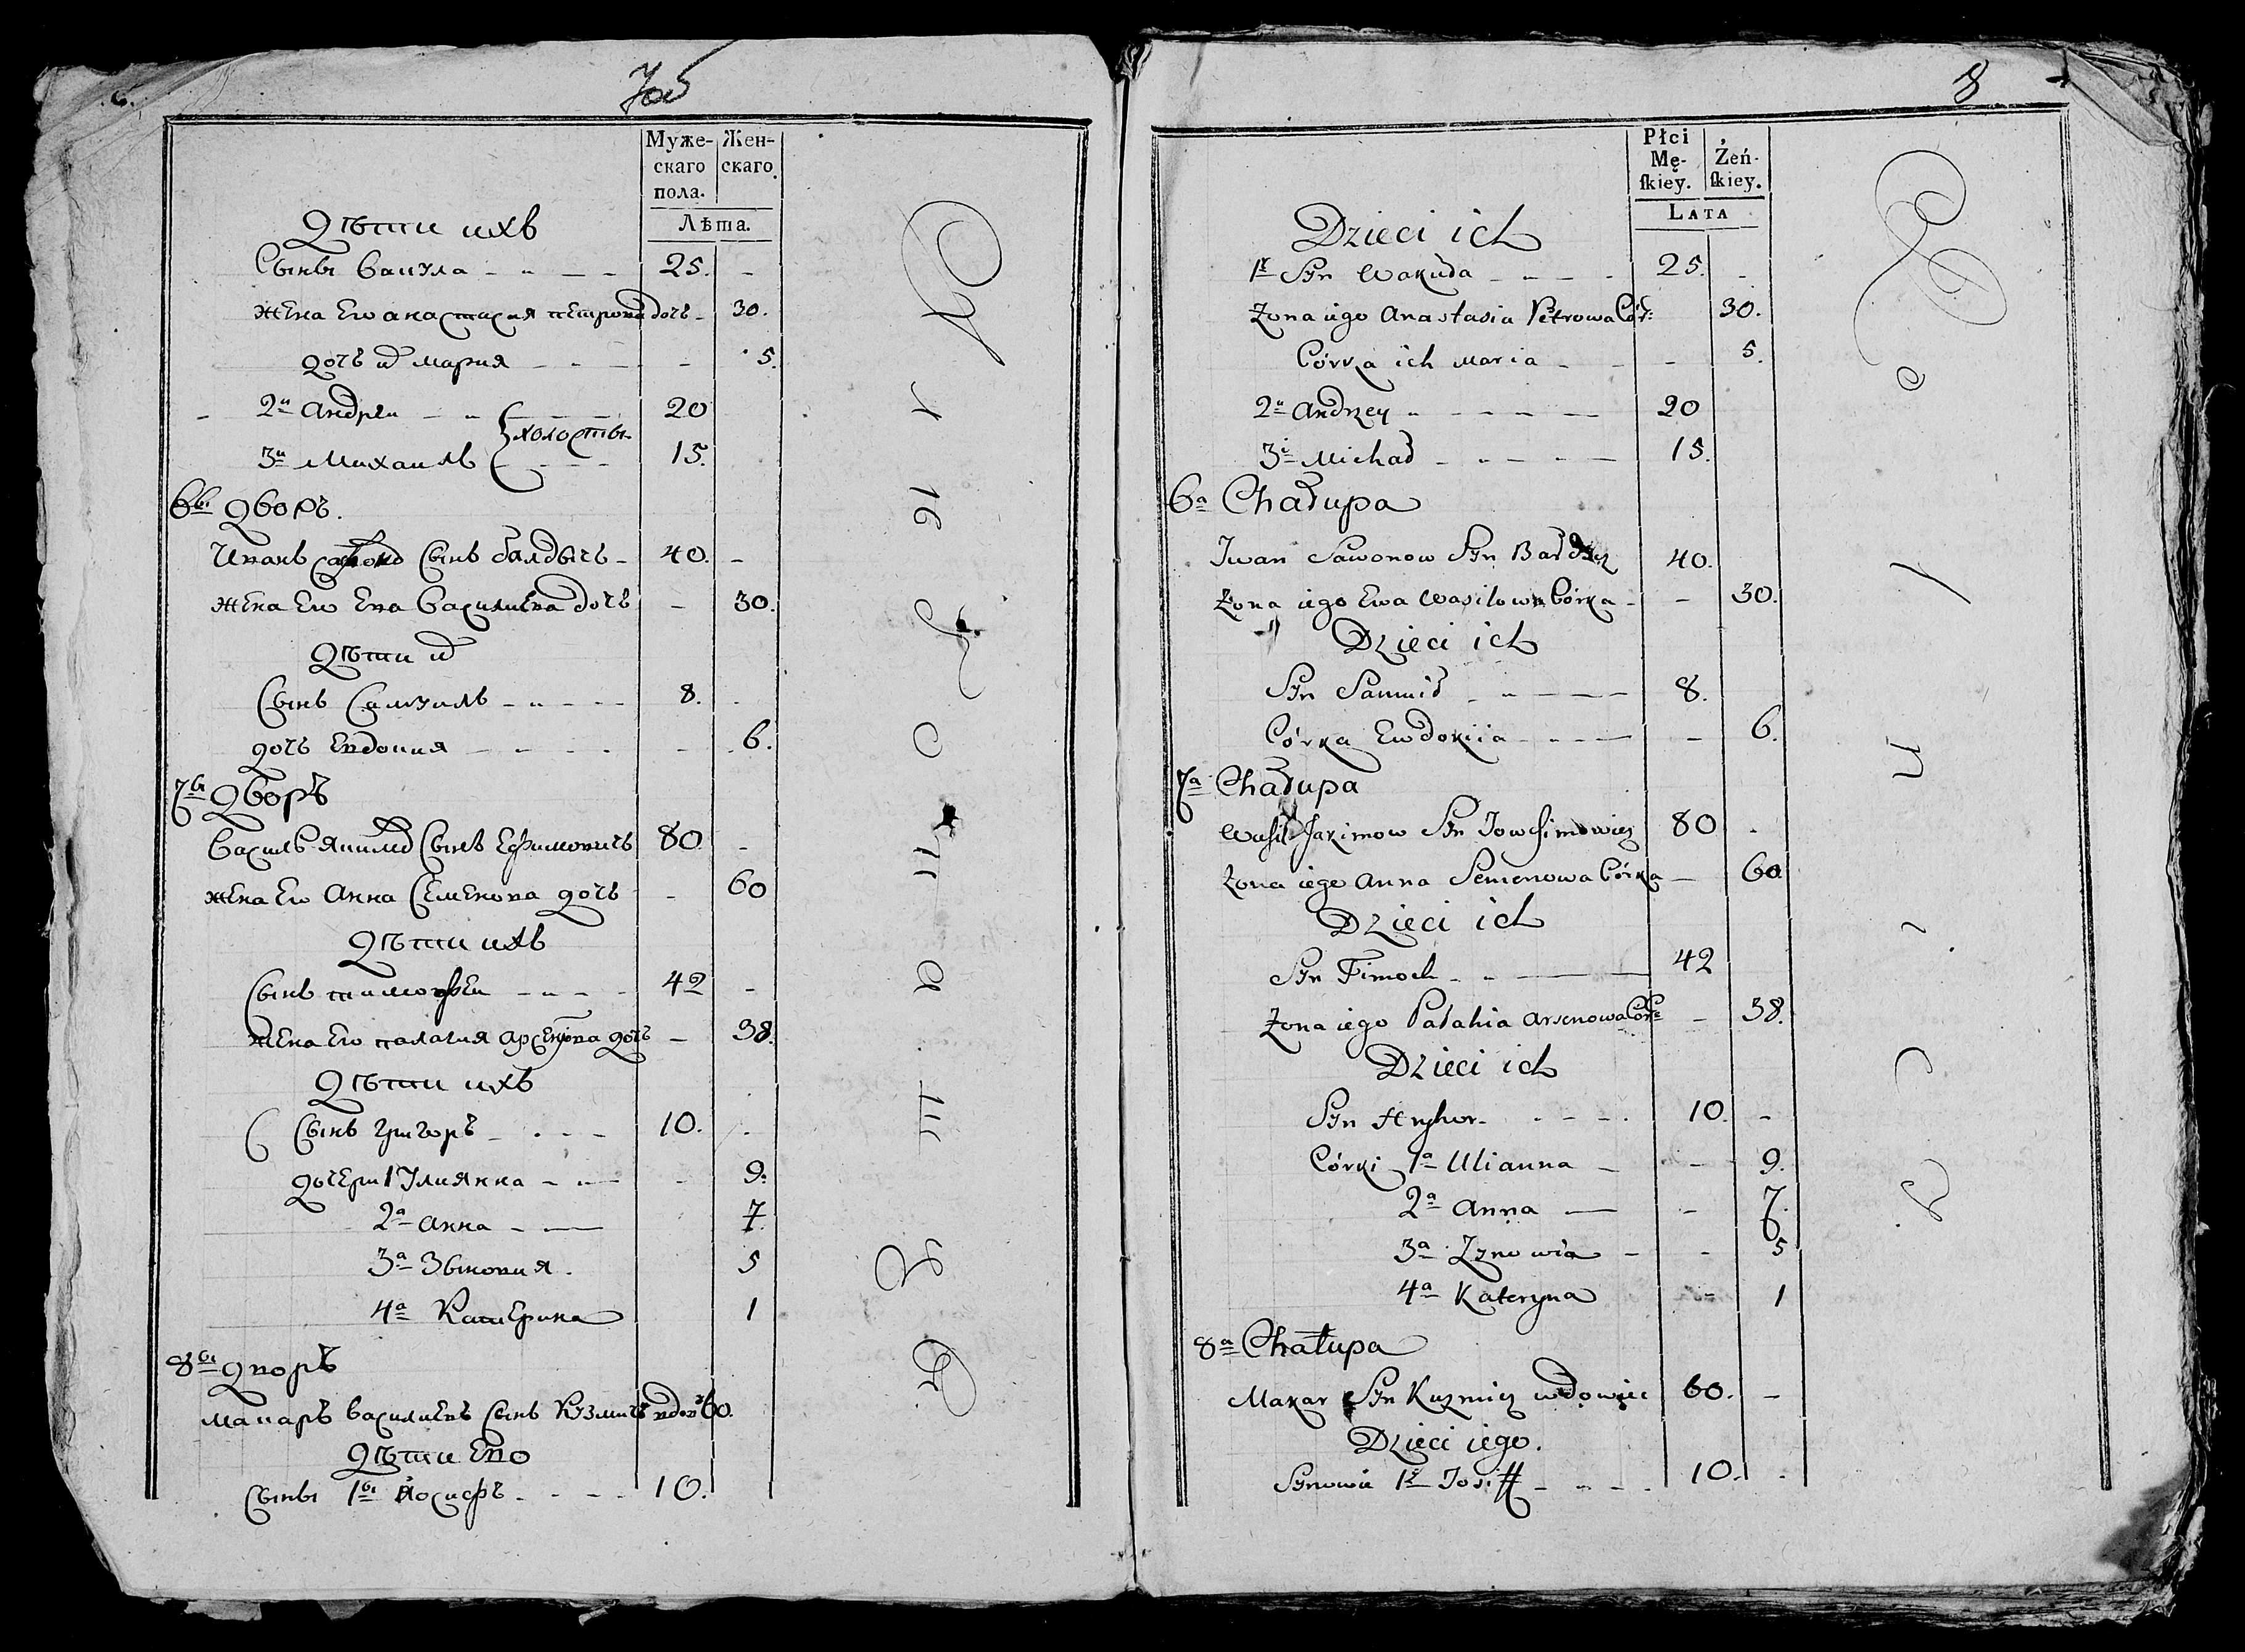 Муже-
скаго
пола.
Жен-
скаго
Лѣта.
Дѣти ихъ
Сыны Вакула 25.
жена ево анастасия петрова дочь 30.
дочь их мария 5.
2й андрей 20
холосты
3й михаилъ 15.
6й дворъ.
Иванъ сынъ балдычъ 40.
жена ево Ева василиева дочь 30.
Дѣти их
Сынъ Самуилъ 8.
дочь Евдокия 6.
7й дворъ
василь якимов сынъ Ефимовичъ 80
жена ево анна семенова дочь 60
Дѣти ихъ
Сынъ тимофей 42
жена ево палагия арсенова дочь 38.
Дѣти ихъ
Сынъ григоръ 10.
дочери 1 Улиянна 9.
2а анна 7.
3а Зыновия 5
4а Катерина 1
8й дворъ
макаръ василиевъ сынъ Кузмичъ вдов 60.
Дѣти Ево
Сыны 1й иосифъ 10.
8
Płci
Mę-
ſkiey.
Żeń-
ſkiey.
LATA
Dzieci ich
1y Syn Wakuła 25.
Żona iego Anastasia Petrowa Cór: 30.
Córka ich Maria 5.
2i Andrzey 20
3i Michał 15.
6a Chałupa
Iwan Sawonow Syn 40.
Żona iego Ewa Wasilowa Córka 30.
Dzieci ich
Syn Samuił 8.
Córka Ewdokija 6.
7a Chałupa
Wasil Jakimow Syn Jowchimowicz 80
Żona iego Anna Semenowa Córka 60
Dzieci ich
Syn Timoch 42
Żona iego Pałahia Arsenowa Cór: 38.
Dzieci ich
Syn Hryhor 10.
Córki 1a Ulianna 9.
2a Anna 7.
3a Zynowia 5
4a Kateryna 1
8a Chałupa
Makar Syn Kuzmicz wdowiec 60.
Dzieci iego.
Synowie 1y Josiff 10.